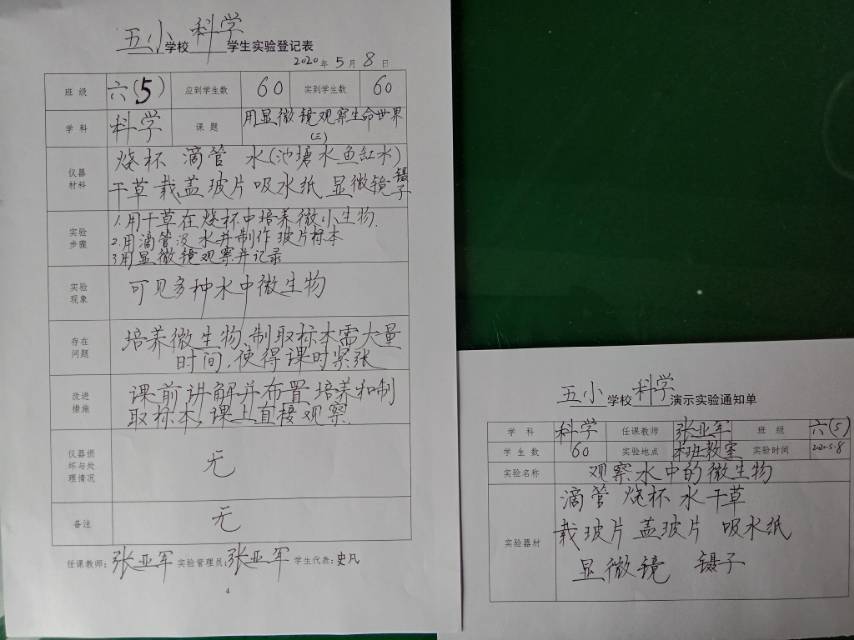 五小学校科学学生实验登记表
2020年5月8日
班级 六(5) 应到学生数 60 实到学生数 60
学科 科学 课题 用显微镜观察生命世界
(三)
仪器材料 烧杯 滴管 水(池塘水鱼缸水)
干草 载、盖玻片 吸水纸 显微镜 镊子
实验步骤 1.用干草在烧杯中培养微小生物.
2.用滴管汲水并制作玻片标本
3用显微镜观察并记录
实验现象 可见多种水中微生物
存在问题 培养微生物、制取标本需大量
时间,使得课时紧张
改进措施 课前讲解并布置培养和制
取标本,课上直接观察.
仪器损坏与处理情况 无
备注 无
任课教师:张亚军 实验管理员:张亚军 学生代表:史凡
4
五小学校科学演示实验通知单
学科 科学 任课教师 张亚军 班级 六(5)
学生数 60 实验地点 本班教室 实验时间 2020.5.8
实验名称 观察水中的微生物
实验器材 滴管 烧杯 水 干草
载玻片 盖玻片 吸水纸
显微镜 镊子